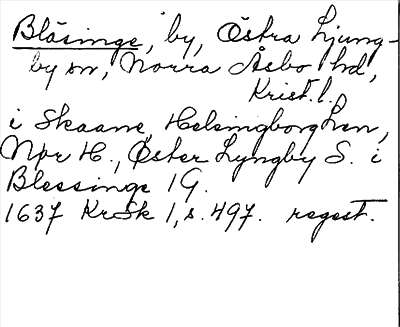 Blåsinge, by, Östra Ljung-
by sn, Norra Åsbo hd,
Krist. l.
i Skaane, Helsingborg Len,
Nør H., Øster Lyngby S. i
Blessinge 1 G.
1637 KrSk 1, s. 497. regest.